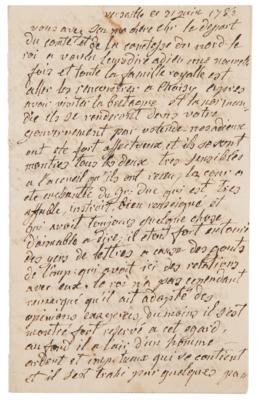 versaille ce 21 juin 1782
vous avez seu mon cher le depart
du conte et de la contesse du nord le
roi a voulu leurs dire adieu une nouvelle
fois et toute la famille royalle est
aller les rencontrer a choisy apres
avoir visiter la bretagne et la normandie
ils se rendront dans votre
gouvernement par ostende nos adieux
ont ete fort affectueux et ils se sont
montres tous les deux tres sensibles
a l'acceuil qu'ils ont recu, la cour a
ete enchantée du gr: duc qui est tres
affable, instruit bien renseigné et
qui avait toujours quelque chose
d'aimable a dire; il etoit fort entouré
des gens de lettres a cause des gouts
de l'imp: qui avait ici des relations
avec eux. le roi n'a pas cependant
remarqué qu'il ait adopté des
opinions du moins il s'est
montré fort reservé a cet egard,
au fond il a l'air d'un homme
ardent et impetueux qui se contient
et il s'est trahi par quelques